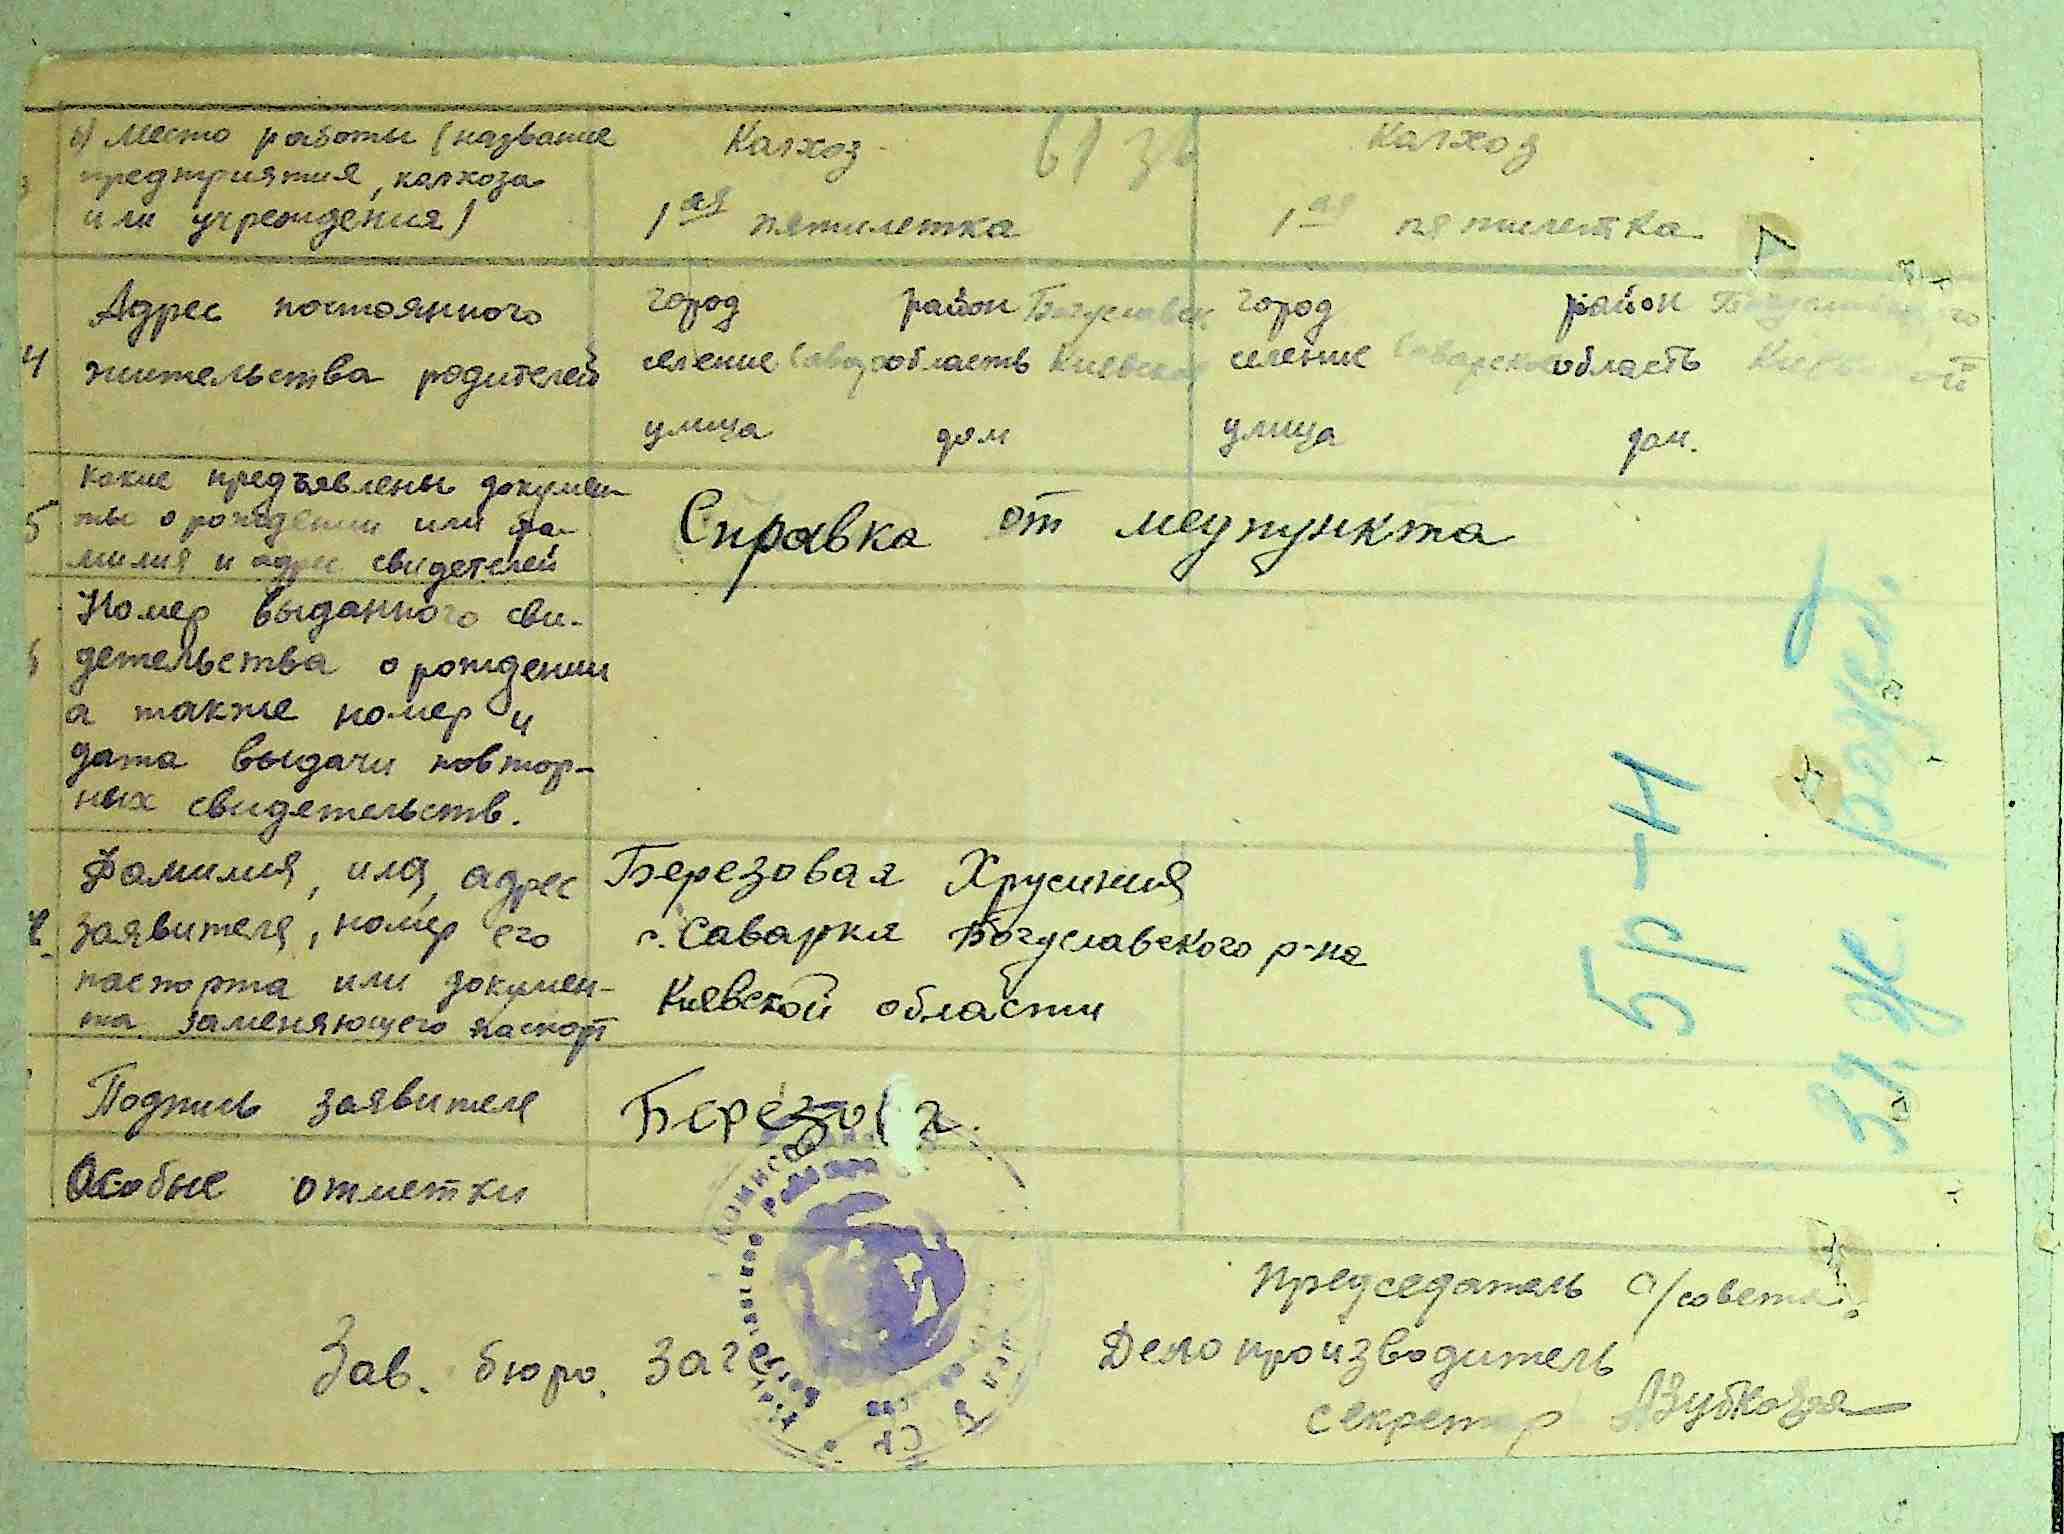 в) Место работы (название
предприятия, колхоза
или учреждения)
Калхоз
1ая пятилетка
Калхоз
1ая пятилетка
4
Адрес постоянного
жительства родителей
город район Богуславск
селение область Киевская
улица дом
город район
селение Саварское область
улица дом.
5
Какие предъявлены докумен-
ты о рождении или фа-
милия и адрес свидетелей
Справка от медпункта
Номер выданного сви-
детельства о рождении
а также номер и
дата выдачи повтор-
ных свидетельств.
Фамилия, имя, адрес
заявителя, номер его
паспорта или докумен-
та заменяющего паспорт
Березовая Хрусиния
с. Саварка Богуславского р-на
Киевской области
Подпись заявителя
Особые отметки
Зав. бюро. загс
Председатель с/совета.
Делопроизводитель
секретар
5р-н